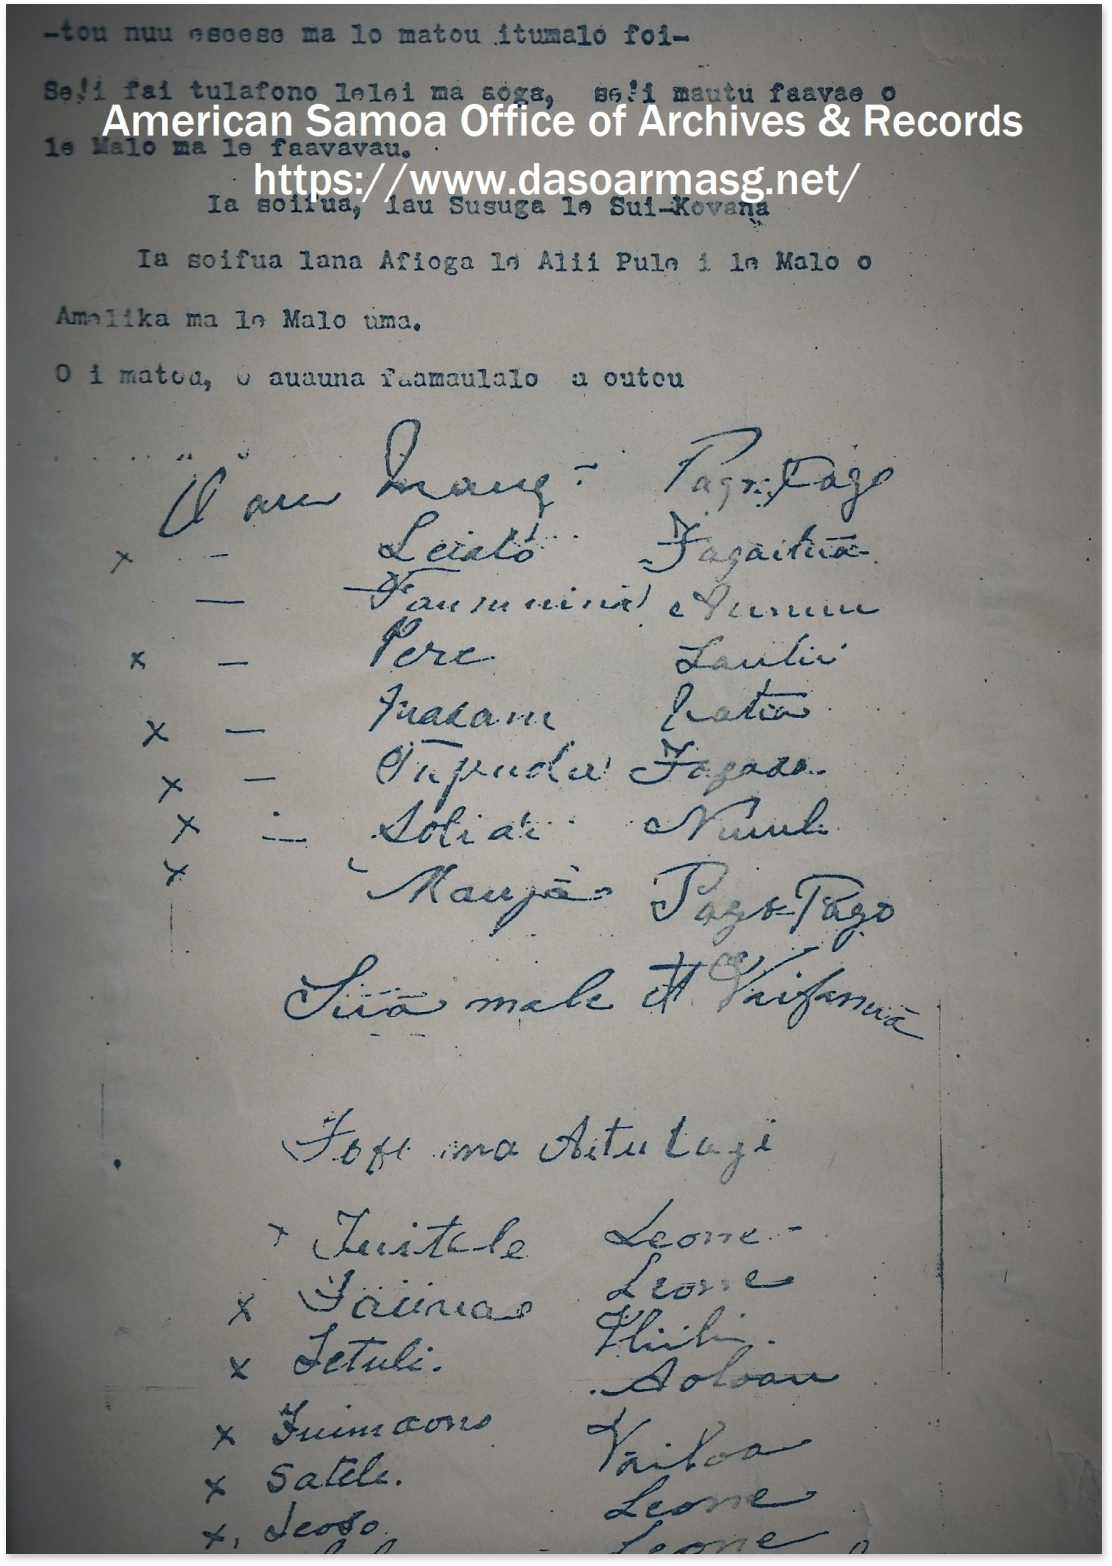 -tou nuu eseese ma lo matou itumalo foi-
Se!i fai tulafono lelei ma aoga, se!i mautu faavae o
American Samoa Office of Archives & Records
le Malo ma le faavavau.
https://www.dasoarmasg.net/
Ia soifua, lau Susuga le Sui-Kovana
Ia soifua lana Afioga le Alii Pule i le Malo o
Amelika ma le Malo uma.
O i matou, o auauna faamaulalo a outou
O au Mauga - Pago Pago
x - Leiato Fagaitua
- Faumuina Aunuu
x - Pere Laulii
x - Fuasau Vatia
x - Tupuola Fagasa
x - Soliai Nuuuli
x Mauga Pago-Pago
Sua male Vaifanua
Fofo ma Aitulagi
x Tuitele Leone -
x Faiivae Leone
x Letuli. Iliili.
Aoloau
x Fuimaono
Vailoa
x Satele.
Leone
x Leoso
Leone